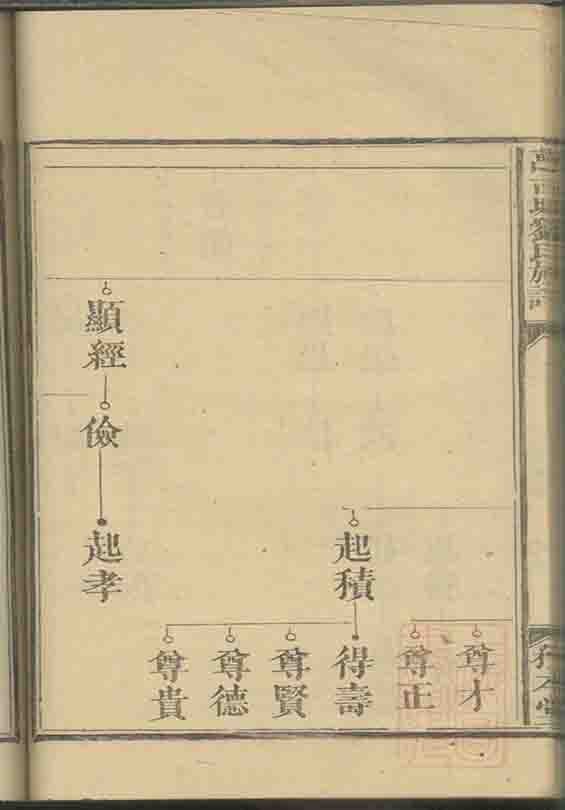 劉氏族譜
尊才
尊正
起積
得壽
尊賢
尊德
尊貴
顯經
儉
起孝